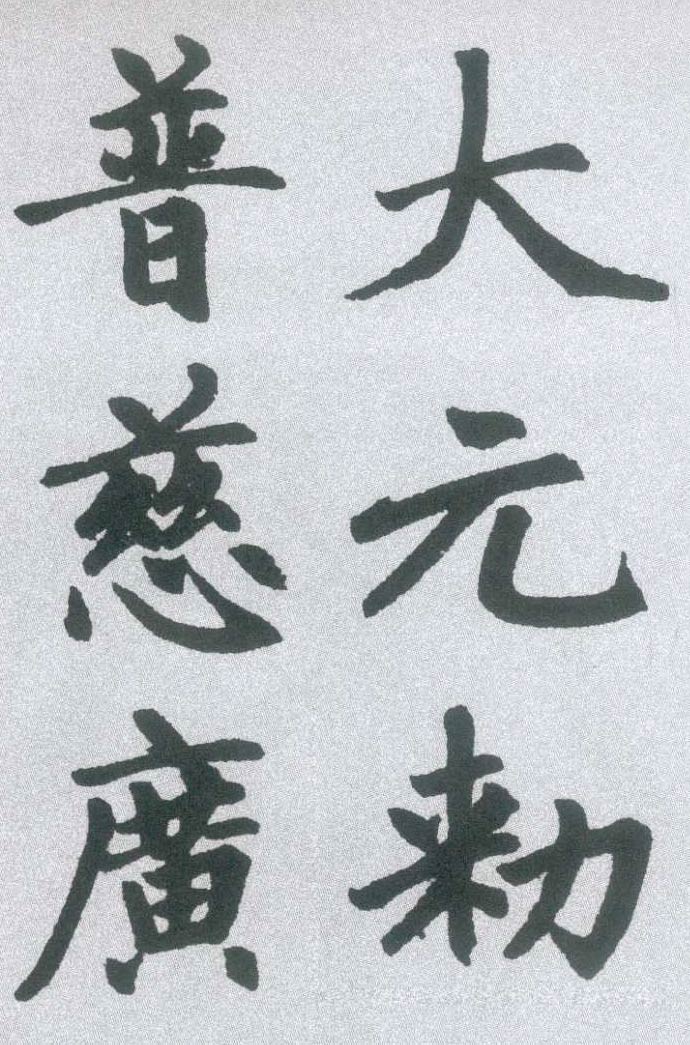 大元勑
普慈廣